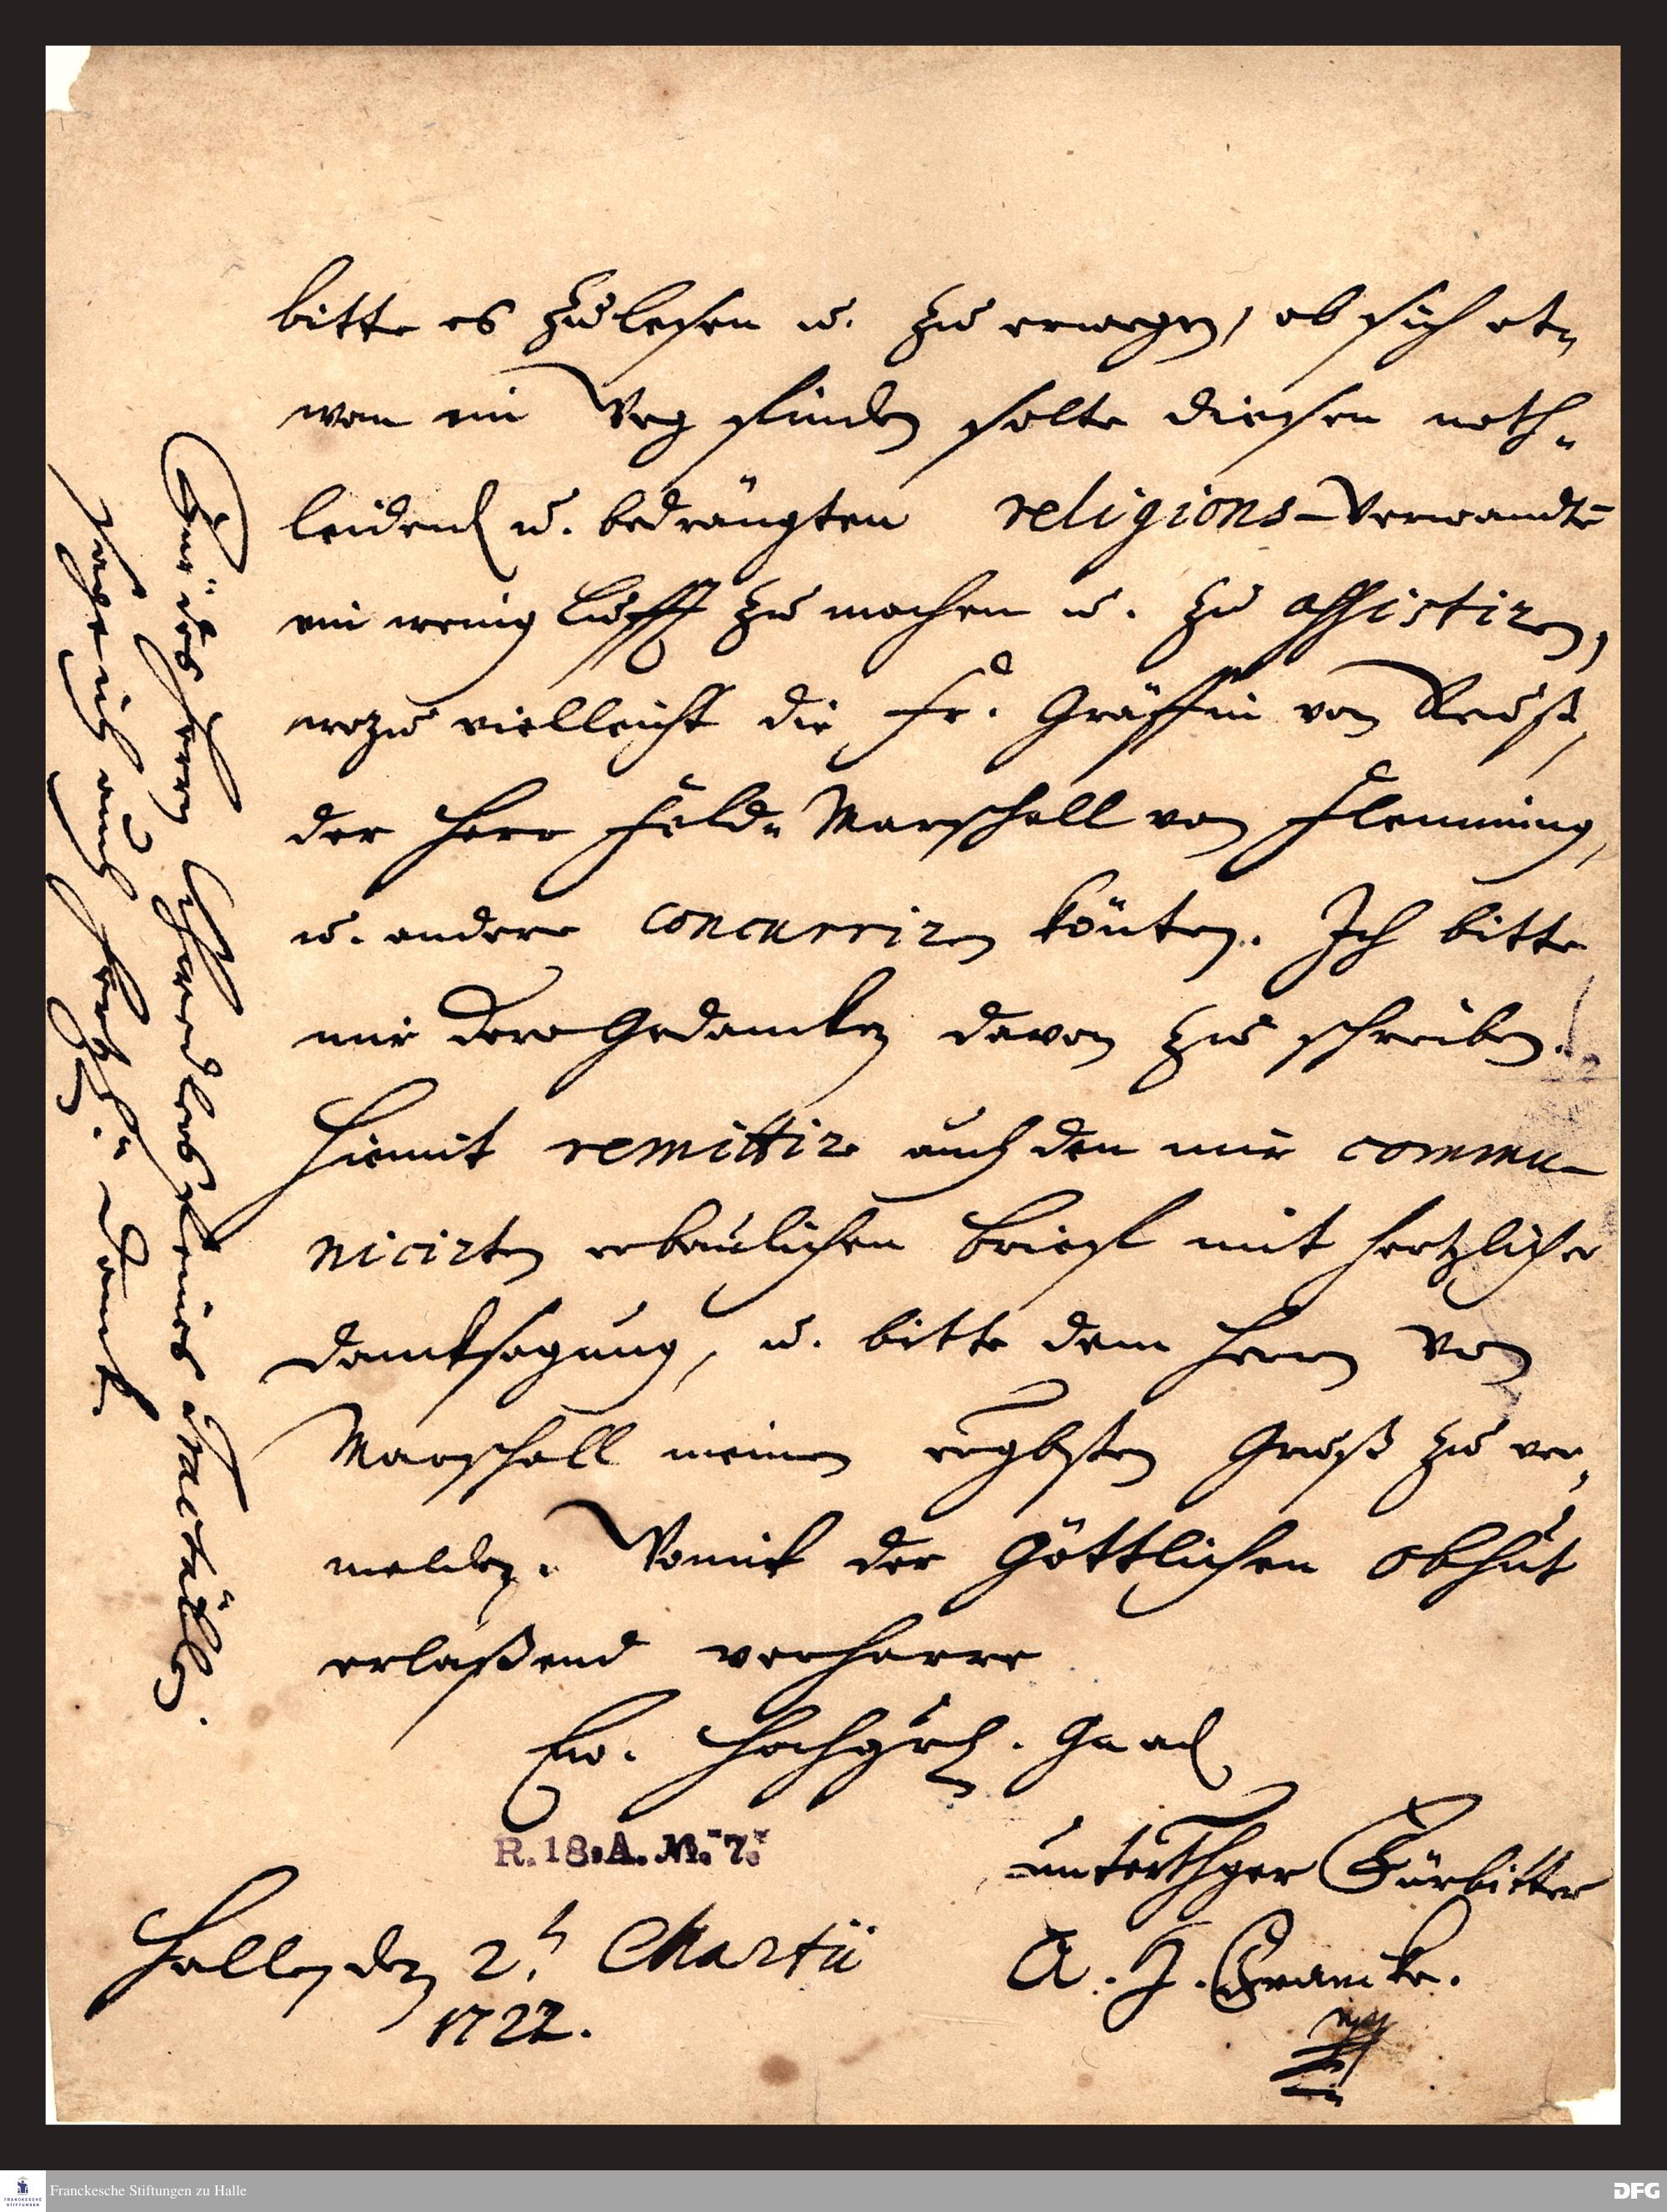 bitte es zu lesen u. zu erwegen, ob sich et-
wan ein Weg finden solte diesen noth-
leidend u. bedrängten religions-Verwandte
ein wenig Lufft zu machen u. zu assistiren,
wozu vielleicht die Fr. Gräffin von Reuß,
der Herr Feld-Marschall von Flemming,
u. andere concurriren könten. Ich bitte
mir dero Gedancken davon zu schreiben.
Hiemit remittire auch den mir commu-
nicirten erbaulichen Brief mit hertzlicher
Dancksagung, u. bitte dem Herrn von
Marschall meinen Gruß zu ver-
melden. Womit der Göttlichen Obhut
erlaßend verharre
Ew. Hochgrfl. Gnad
unterthger Fürbitter
R. 18. A. M. 7.
A. H. Francke.
Halle, den 2. Martii
1722.
Für des Herrn kleines Tractätl.
sage ich auch hertzl. Danck
Franckesche Stiftungen zu Halle
FRANCKESCHE STIFTUNGEN
DFG